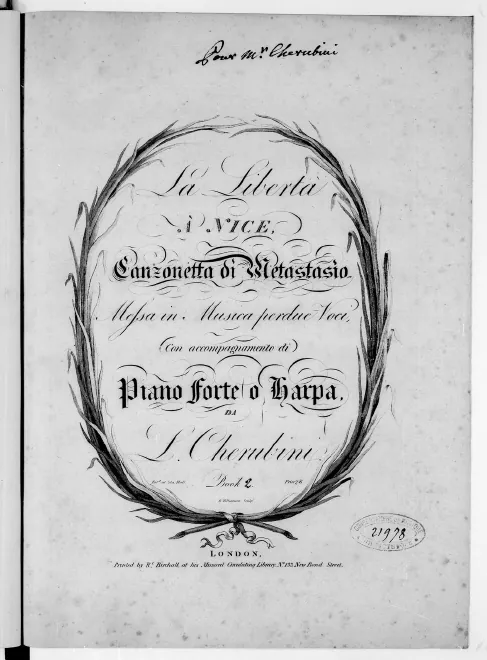 Pour Mr. Cherubini
La Libertà
À NICE,
Canzonetta di Metastasio
Messa in Musica per due Voci,
Con accompagnamento di
Piano Forte o Harpa,
DA
L. Cherubini
Book 2
LONDON,
Printed by Rt. Birchall, at his Musical Circulating Library, No. 133 New Bond Street.
21978